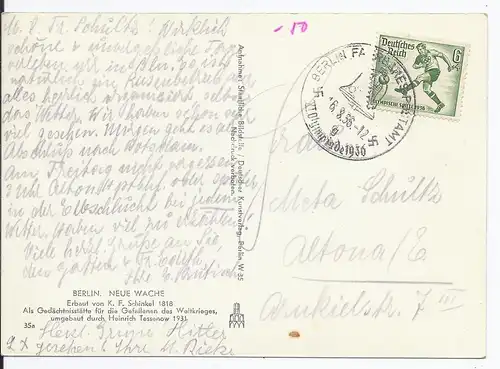 L. Fr. Schultz! Wirklich
schöne & unvergessliche Tage
erleben wir in Bln. Es ist
natürlich ein Riesenbetrieb aber
alles herrlich organisiert sebst
das Wetter. Wir haben schon sehr
viel gesehen. Morgen geht es als
Abschluß nach Potsdam.
Am Freitag nicht vergessen
3 Uhr Altona Hptbhf. oder später
in der Elbschlucht bei jedem
Wetter. Haben viel zu erzählen!
Viele herzl. Grüße an Sie,
den Gatten & Fr. Edith
Ihre
BERLIN. NEUE WACHE
Erbaut von K. F. Schinkel 1818
Als Gedächtnisstätte für die Gefallenen des Weltkrieges,
umgebaut durch Heinrich Tessenow 1931
35a
Herzl. Grüße Hitler
2 x gesehen! Ihre M. Rieke
Aufnahme: Staatliche Bildstelle / Deutscher Kunstverlag, Berlin W 35
Nachdruck verboten.
- 50
BERLIN
6.8.36.-12
g
Olympiade 1936
Deutsches Reich
6
OLYMPISCHE SPIELE 1936
Meta Schultz
Altona/E.
7 III